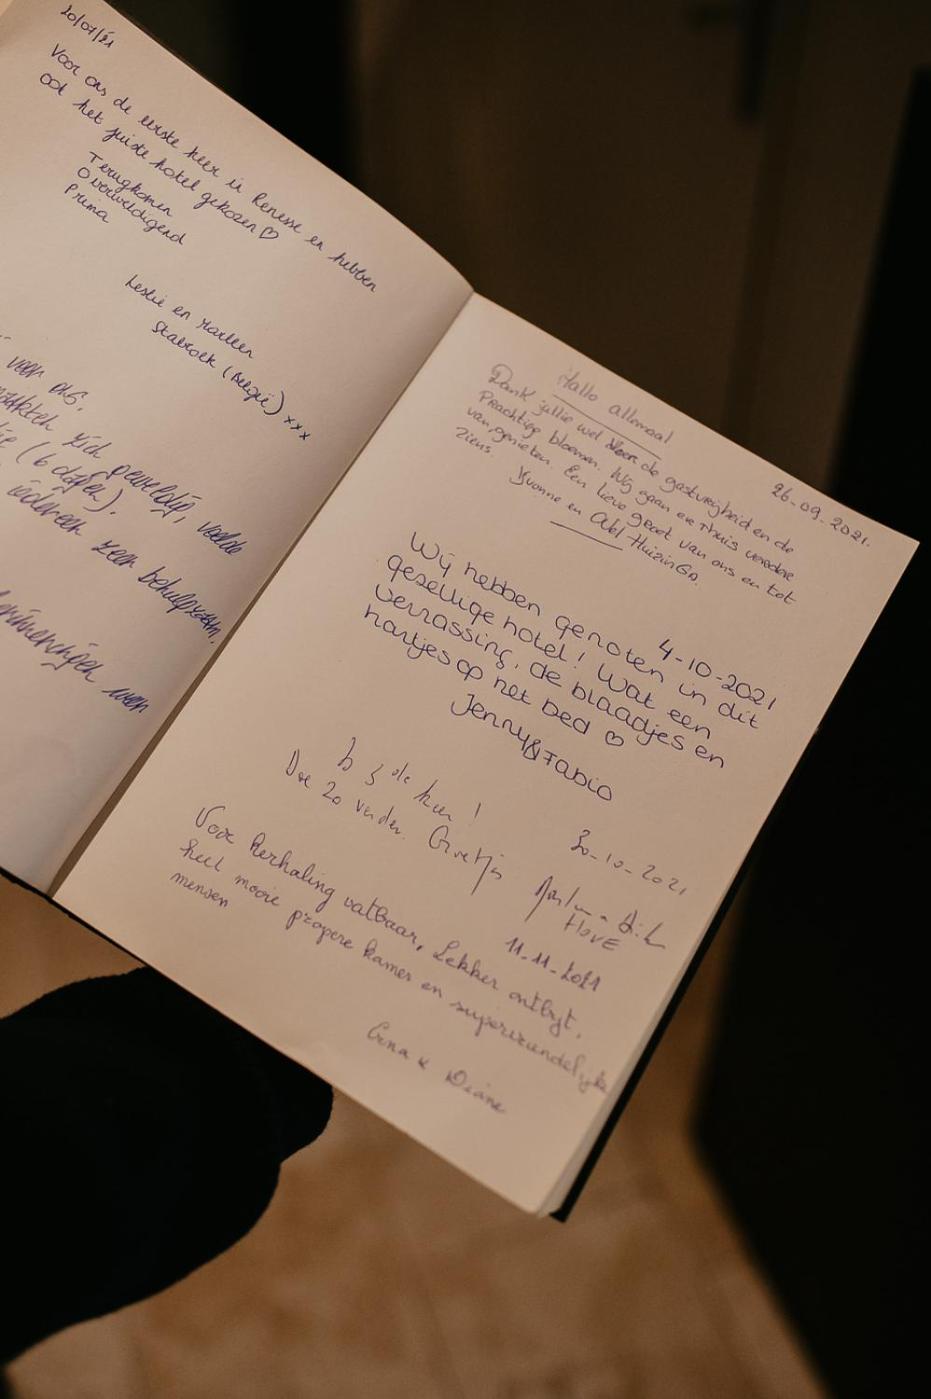 20/07/21
Voor ons de eerste keer in Renesse en hebben
ook het juiste hotel gekozen ♡
Terugkomen
Overweldigend
Prima
Leslie en Marleen
Stabroek (België) xxx
voor ons.
zich geweldig, voelde
(6 dagen).
iedereen zeer behulpzaam.
herinneringen
Hallo allemaal
26-09-2021.
Dank jullie wel voor de gastvrijheid en de
Prachtige bloemen. Wij gaan er thuis verder
van genieten. Een lieve groet van ons en tot
ziens.
Yvonne en Abel Huizinga.
4-10-2021
Wij hebben genoten in dit
gezellige hotel! Wat een
verrassing, de blaadjes en
hartjes op het bed ♡
Jenny & Fabio
30-10-2021
de keer!
Doe zo verder. Groetjes
HOVE
11-11-2021
Voor herhaling vatbaar, Lekker ontbijt,
heel mooie propere kamer en supervriendelijke
mensen
& Diane